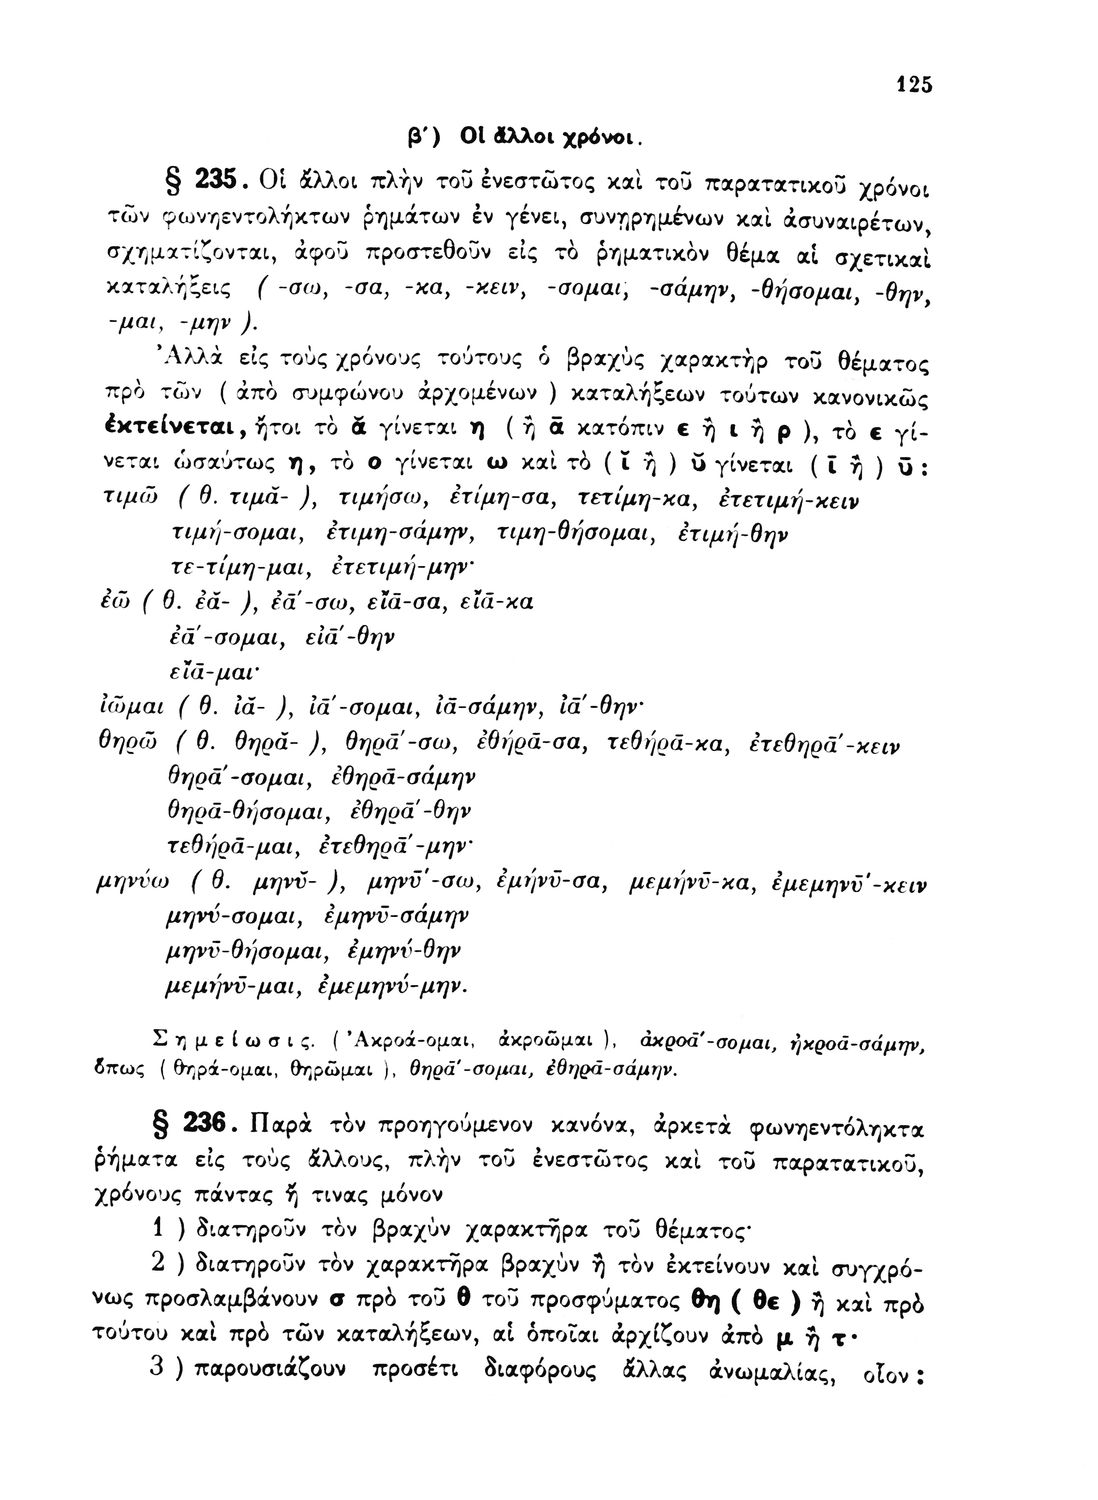 125
β′) Οἱ ἄλλοι χρόνοι.
§ 235. Οἱ ἄλλοι πλὴν τοῦ ἐνεστῶτος καὶ τοῦ παρατατικοῦ χρόνοι
τῶν φωνηεντολήκτων ῥημάτων ἐν γένει, συνῃρημένων καὶ ἀσυναιρέτων,
σχηματίζονται, ἀφοῦ προστεθοῦν εἰς τὸ ῥηματικὸν θέμα αἱ σχετικαὶ
καταλήξεις ( -σω, -σα, -κα, -κειν, -σομαι, -σάμην, -θήσομαι, -θην,
-μαι, -μην ).
Ἀλλὰ εἰς τοὺς χρόνους τούτους ὁ βραχὺς χαρακτὴρ τοῦ θέματος
πρὸ τῶν ( ἀπὸ συμφώνου ἀρχομένων ) καταλήξεων τούτων κανονικῶς
ἐκτείνεται, ἤτοι τὸ ᾰ γίνεται η ( ἢ ᾱ κατόπιν ε ἢ ι ἢ ρ ), τὸ ε γί-
νεται ὡσαύτως η, τὸ ο γίνεται ω καὶ τὸ ( ῐ ἢ ) ῠ γίνεται ( ῑ ἢ ) ῡ :
τιμῶ ( θ. τιμᾰ- ), τιμήσω, ἐτίμη-σα, τετίμη-κα, ἐτετιμή-κειν
τιμή-σομαι, ἐτιμη-σάμην, τιμη-θήσομαι, ἐτιμή-θην
τε-τίμη-μαι, ἐτετιμή-μην·
ἐῶ ( θ. ἐᾰ- ), ἐᾱ́-σω, εἴᾱ-σα, εἴᾱ-κα
ἐᾱ́-σομαι, εἰᾱ́-θην
εἴᾱ-μαι·
ἰῶμαι ( θ. ἰᾰ- ), ἰᾱ́-σομαι, ἰᾱ-σάμην, ἰᾱ́-θην·
θηρῶ ( θ. θηρᾰ- ), θηρᾱ́-σω, ἐθήρᾱ-σα, τεθήρᾱ-κα, ἐτεθηρᾱ́-κειν
θηρᾱ́-σομαι, ἐθηρᾱ-σάμην
θηρᾱ-θήσομαι, ἐθηρᾱ́-θην
τεθήρᾱ-μαι, ἐτεθηρᾱ́-μην·
μηνύω ( θ. μηνῠ- ), μηνῡ́-σω, ἐμήνῡ-σα, μεμήνῡ-κα, ἐμεμηνῡ́-κειν
μηνύ-σομαι, ἐμηνῡ-σάμην
μηνῡ-θήσομαι, ἐμηνύ-θην
μεμήνῡ-μαι, ἐμεμηνύ-μην.
Σημείωσις. ( Ἀκροά-ομαι, ἀκροῶμαι ), ἀκροᾱ́-σομαι, ἠκροᾱ-σάμην,
ὅπως ( θηρά-ομαι, θηρῶμαι ), θηρᾱ́-σομαι, ἐθηρᾱ-σάμην.
§ 236. Παρὰ τὸν προηγούμενον κανόνα, ἀρκετὰ φωνηεντόληκτα
ῥήματα εἰς τοὺς ἄλλους, πλὴν τοῦ ἐνεστῶτος καὶ τοῦ παρατατικοῦ,
χρόνους πάντας ἤ τινας μόνον
1 ) διατηροῦν τὸν βραχὺν χαρακτῆρα τοῦ θέματος·
2 ) διατηροῦν τὸν χαρακτῆρα βραχὺν ἢ τὸν ἐκτείνουν καὶ συγχρό-
νως προσλαμβάνουν σ πρὸ τοῦ θ τοῦ προσφύματος θη ( θε ) ἢ καὶ πρὸ
τούτου καὶ πρὸ τῶν καταλήξεων, αἱ ὁποῖαι ἀρχίζουν ἀπὸ μ ἢ τ·
3 ) παρουσιάζουν προσέτι διαφόρους ἄλλας ἀνωμαλίας, οἷον :